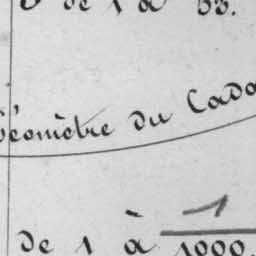 de 1 à 53.
Géomètre du Cada
de 1 à 1/1000.